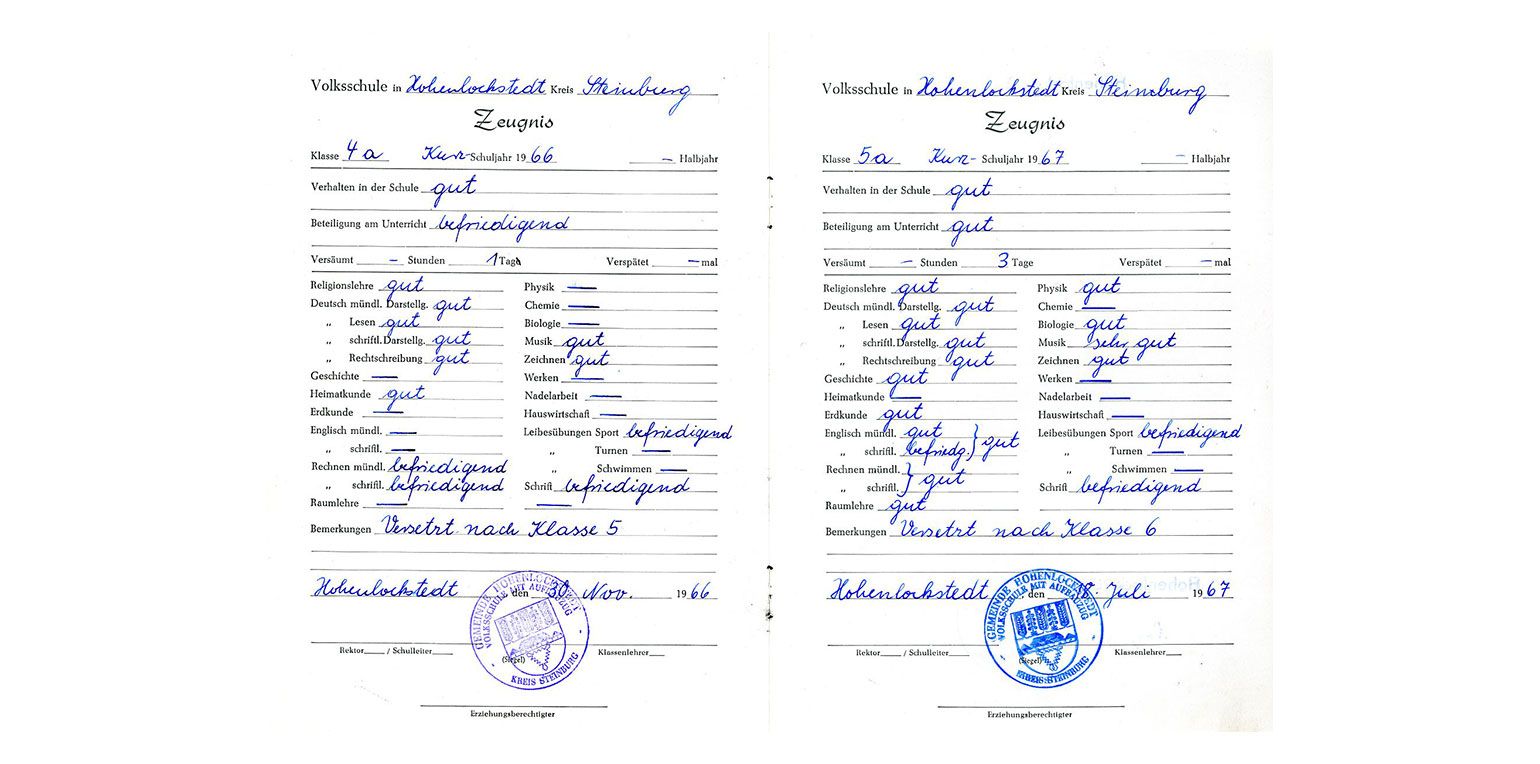 Volksschule in Hohenlockstedt Kreis Steinburg
Zeugnis
Klasse 4a Kurz-Schuljahr 1966 – Halbjahr
Verhalten in der Schule gut
Beteiligung am Unterricht befriedigend
Versäumt – Stunden 1 Tage Verspätet – mal
Religionslehre gut Physik —
Deutsch mündl. Darstellg. gut Chemie —
„ Lesen gut Biologie —
„ schriftl. Darstellg. gut Musik gut
„ Rechtschreibung gut Zeichnen gut
Geschichte — Werken —
Heimatkunde gut Nadelarbeit —
Erdkunde — Hauswirtschaft —
Englisch mündl. — Leibesübungen Sport befriedigend
„ schriftl. — „ Turnen —
Rechnen mündl. befriedigend „ Schwimmen —
„ schriftl. befriedigend Schrift befriedigend
Raumlehre — —
Bemerkungen Versetzt nach Klasse 5
Hohenlockstedt den 30. Nov. 1966
GEMEINDE HOHENLOCKSTEDT
VOLKSSCHULE MIT AUFBAUZUG
KREIS STEINBURG
Rektor / Schulleiter (Siegel) Klassenlehrer
Erziehungsberechtigter
Volksschule in Hohenlockstedt Kreis Steinburg
Zeugnis
Klasse 5a Kurz- Schuljahr 1967 – Halbjahr
Verhalten in der Schule gut
Beteiligung am Unterricht gut
Versäumt – Stunden 3 Tage Verspätet – mal
Religionslehre gut Physik gut
Deutsch mündl. Darstellg. gut Chemie —
„ Lesen gut Biologie gut
„ schriftl. Darstellg. gut Musik sehr gut
„ Rechtschreibung gut Zeichnen gut
Geschichte gut Werken —
Heimatkunde — Nadelarbeit —
Erdkunde gut Hauswirtschaft —
Englisch mündl. gut } gut Leibesübungen Sport befriedigend
„ schriftl. befriedg. „ Turnen —
Rechnen mündl. } gut „ Schwimmen —
„ schriftl. Schrift befriedigend
Raumlehre gut
Bemerkungen Versetzt nach Klasse 6
Hohenlockstedt, den 18. Juli 1967
GEMEINDE HOHENLOCKSTEDT
VOLKSSCHULE MIT AUFBAUZUG
KREIS STEINBURG
Rektor / Schulleiter (Siegel) Klassenlehrer
Erziehungsberechtigter